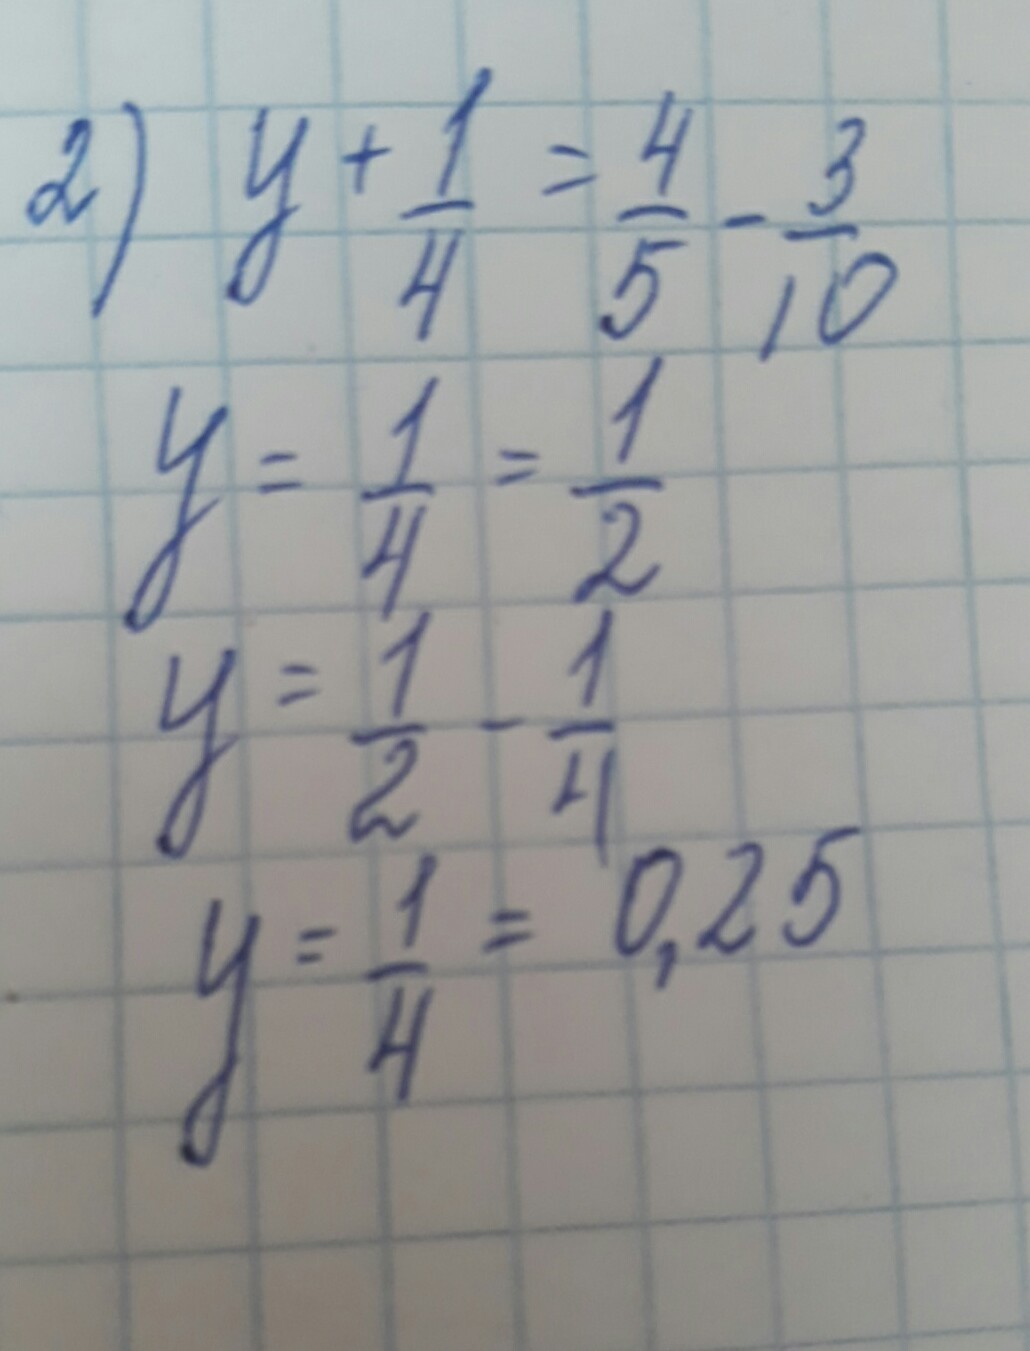 2) y + 1/4 = 4/5 - 3/10
y = 1/4 = 1/2
y = 1/2 - 1/4
y = 1/4 = 0,25